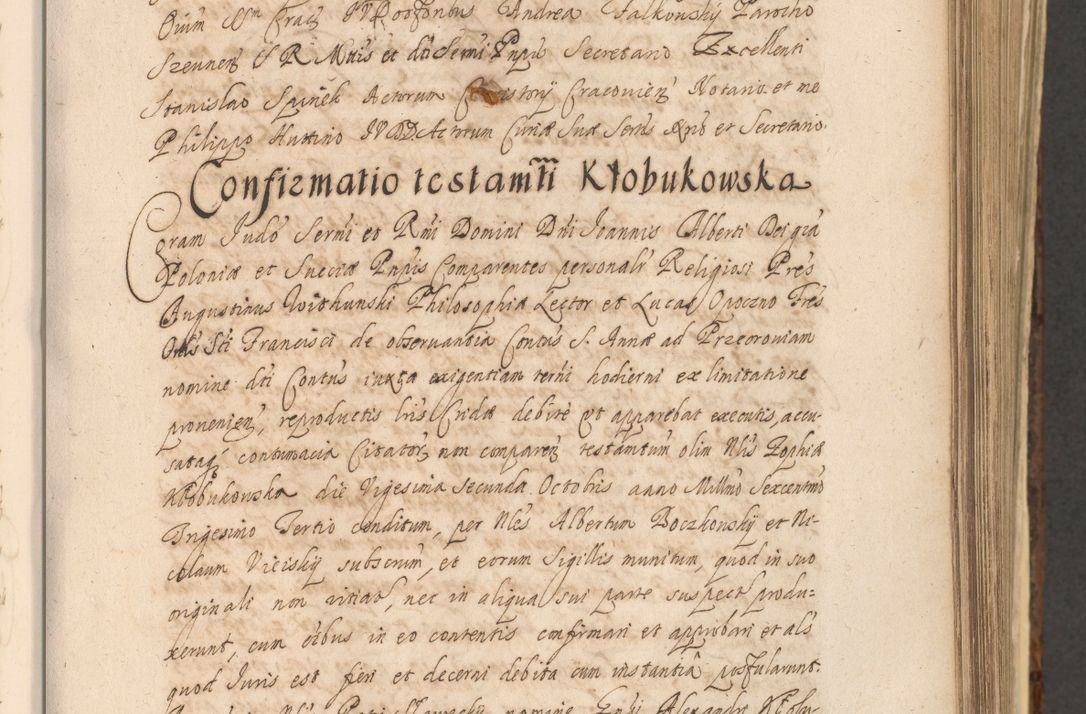 Oium SSm Crac IVD Andrea Falkowsky Parocho
Szeunen S R Mttis et dti Sermi Pnpis Secretario Excellenti
Stanislao Spinek Actorum Consistorij Cracovien Notario et me
Philippo Huttino IVDD Actorum Curiæ Suæ Sertis Nrio et Secretario.
Confirmatio testamti Kłobukowska
Coram Judō Sermi et Rmi Domini Dni Joannis Alberti Dei gīa
Poloniæ et Sueciæ Pnpis Comparentes personalr Religiosi Pres
Augustinus Withunski Philosophiæ Lector et Lucas Opoczno Fres
Ordis Sti Francisci de observantia Contus S. Annæ ad Przeoroviam
nomine dti Contus iuxta exigentiam termi hodierni ex limitatione
provenien, reproductis lris Cridæ debite ut apparebat executis, accu-
sataq contumacia Citator non comparen testamtum olim Nlis Zophiæ
Kłobukowska die Vigesima Secunda Octobris anno Millmo Sexcentmo
Trigesimo Tertio conditum, per Nles Albertum Boczkowsky et Ni-
colaum Vicisky subscrium, et eorum Sigillis munitum, quod in suo
originali non vitiat, nec in aliqua sui parte suspect produ-
xerunt, cum oibus in eo contentis confirmari et approbari et als
quod Juris est fieri et decerni debita cum instantiā postularunt.
nomine Alexandri Kłobu-